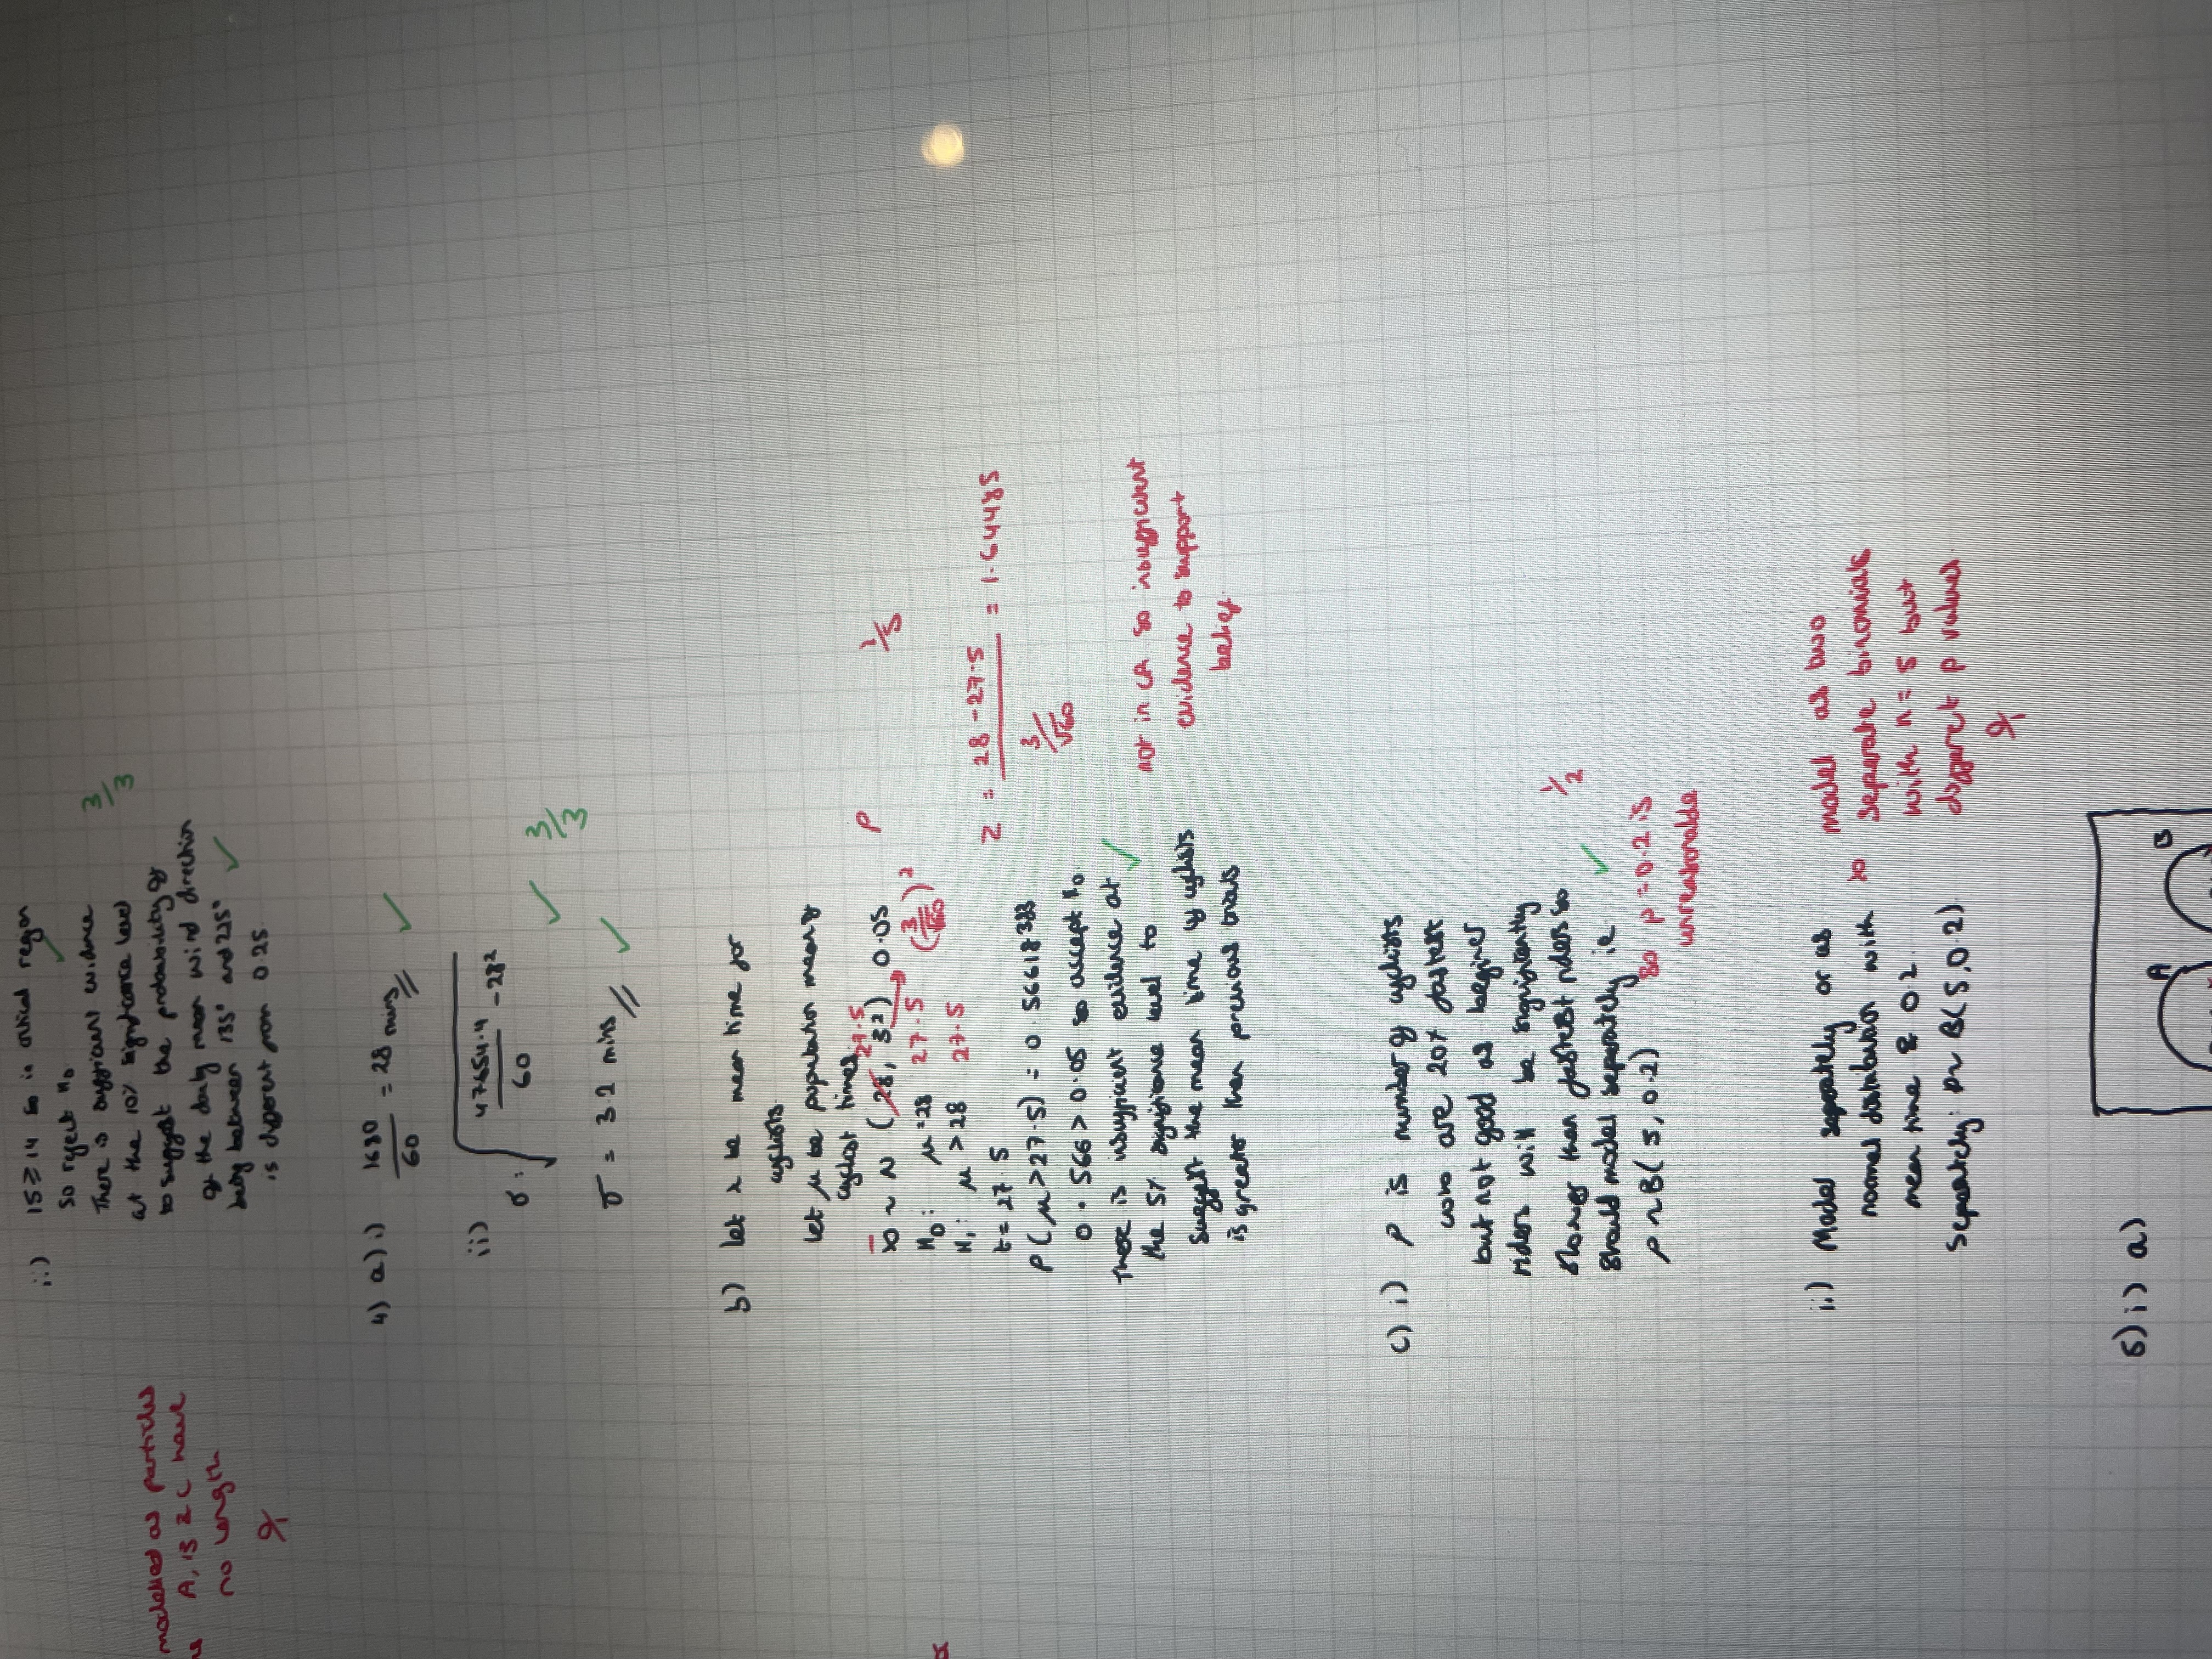 ii) 15 ≥ 14 so in critical region
so reject H₀
There is sufficient evidence
at the 10% significance level
to suggest the probability of
the daily mean wind direction
being between 135° and 225°
is different from 0.25
3/3
modelled as particles
A, B & C have
no length
4) a) i) 1680/60 = 28 mins
ii) σ: √(47654.4/60 - 28²)
σ = 3.2 mins
3/3
b) let x be mean time for
cyclists
let μ be population mean of
cyclist times
x̄ ~ N (28, 3²) 0.05
27.5
(3/√60)²
P
H₀: μ = 28 27.5
H₁: μ > 28 27.5
t = 27.5
P(μ > 27.5) = 0.56618383
0.566 > 0.05 so accept H₀
There is insufficient evidence at
the 5% significance level to
suggest the mean time of cyclists
is greater than previous trials
1/5
Z = (28 - 27.5)/(3/√60) = 1.64485
not in CR so insufficient
evidence to support
belief
c) i) P is number of cyclists
who are 20% fastest
but not good as beginner
riders will be significantly
slower than fastest riders so
should model separately ie
P ~ B(5, 0.2)
1/2
so p = 0.2 is
unreasonable
ii) Model separately or as
normal distribution with
mean time & 0.2.
separately: P ~ B(5, 0.2)
so model as two
separate binomials
with n = 5 but
different p values
5) i) a)
A B